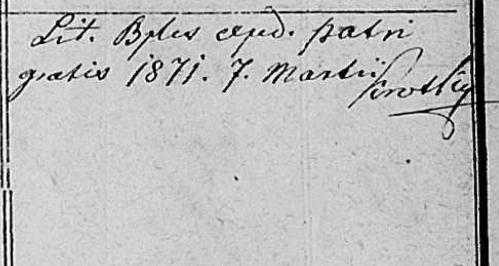 Lit. Bples exped. patri
gratis 1871. 7. Martii